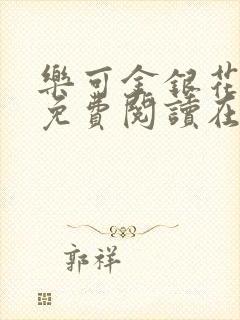 樂可金銀花
免費閱讀在
郭祥